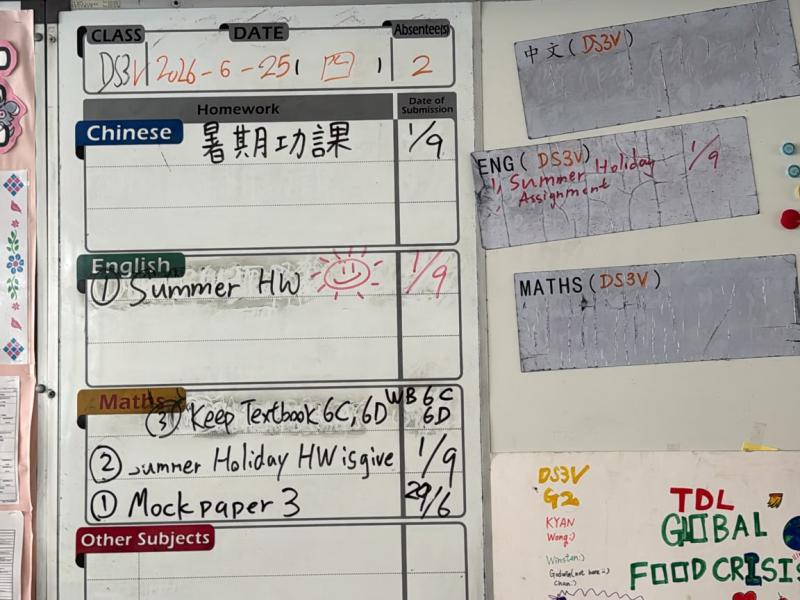 CLASS DATE Absentee(s)
DS3V 2026-6-25 四 2
Homework Date of Submission
Chinese 暑期功課 1/9
English
① Summer HW 1/9
Maths
③ Keep Textbook 6C, 6D WB 6C 6D
② Summer Holiday HW is give 1/9
① Mock paper 3 29/6
Other Subjects
中文(DS3V)
ENG(DS3V)
1, Summer Holiday 1/9
Assignment
MATHS(DS3V)
DS3V
G2
KYAN
Wong:)
Winston:)
Chan:)
TDL
GLOBAL
FOOD CRISIS